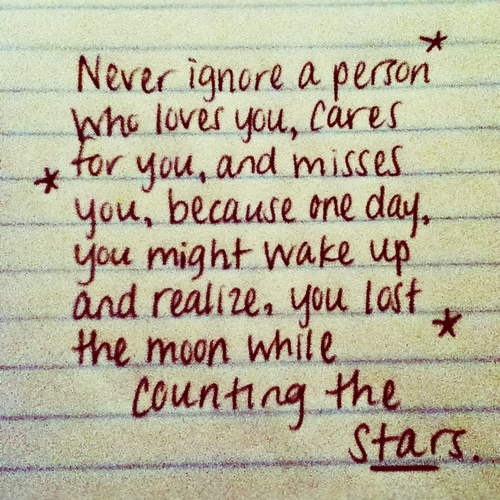 Never ignore a person
who loves you, cares
for you, and misses
you, because one day,
you might wake up
and realize, you lost
the moon while
counting the
stars.